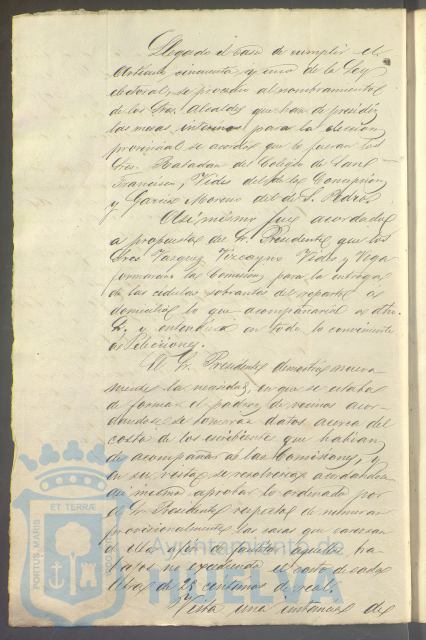 Llegado el caso de cumplir el
Artículo cincuenta y uno de la Ley
electoral, se procedió al nombramiento
de los Sres. Alcaldes que han de presidir
las mesas interinas para la eleccion
provincial se acordó que lo fueran los
Sres. Rabadan del Colegio de San
Francisco, Vides del de la Concepcion
y Garcia Moreno del de S. Pedro.
Asi mismo fue acordado
a propuesta del Sr. Presidente que los
Sres Vazquez, Vizcayno Vides y Vega
formaran la Comision para la entrega
de las cédulas sobrantes del reparto a
domicilio lo que acompañarian a dho
Sr. y entendiera en todo lo concerniente
a Elecciones.
El Sr. Presidente demostró nueva
mente la necesidad en que se estaba
de formar el padron de vecinos acor
dandose se tomaran datos acerca del
costo de los escribientes que habian
de acompañar a las Comisiones, y
en su vista se resolveria acordandose
asi mismo aprobar lo ordenado por
el Sr. Presidente respecto de numerar
provisionalmente las casas que carecian
de ella afin de facilitar aquellos tra
bajos no excediendo el costo de cada
de 25 centimos de real.
Vista una instancia de
PORTUS MARIS ET TERRÆ
Ayuntamiento de
HUELVA